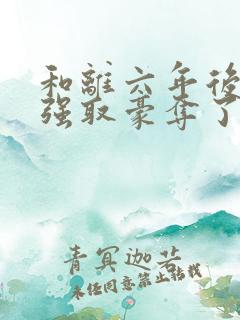 和離六年後
强取豪奪了
青冥迦若
未经同意禁止转载